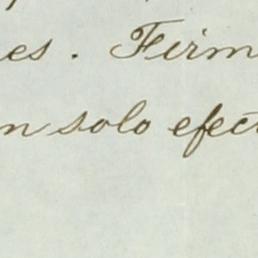 es. Firm
n solo efect